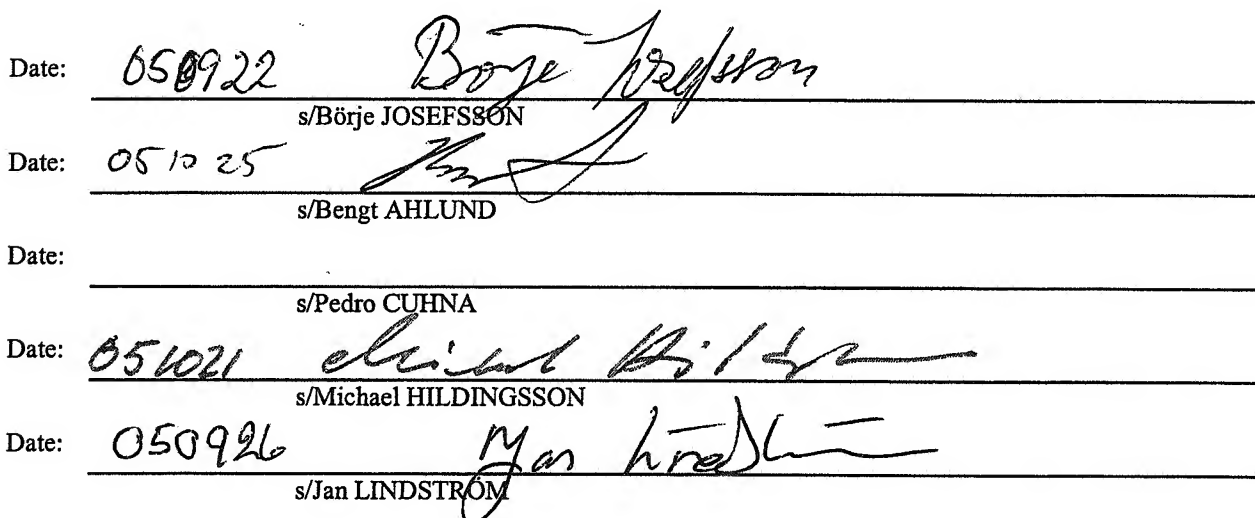 Date: 050922 Börje Josefsson
s/Börje JOSEFSSON
Date: 05 10 25
s/Bengt AHLUND
Date:
s/Pedro CUHNA
Date: 051021 Michael
s/Michael HILDINGSSON
Date: 050926 Jan Lindström
s/Jan LINDSTRÖM